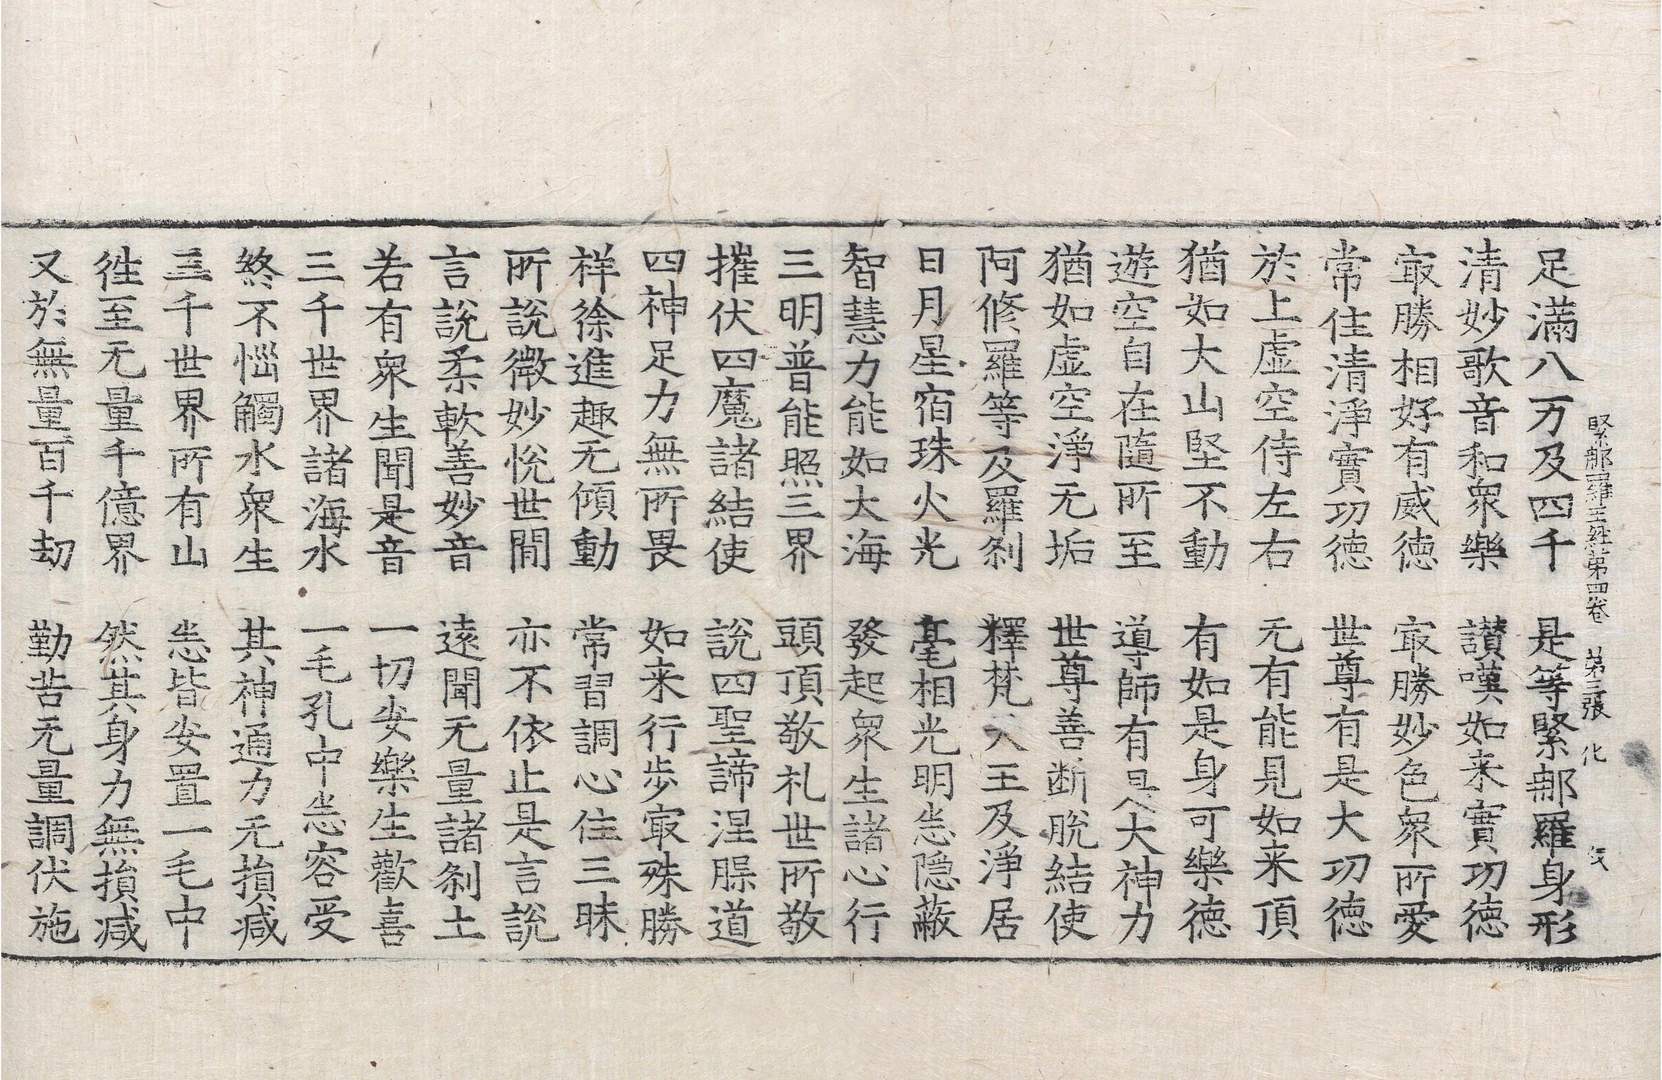 緊那羅王経第四卷 第三張 化
足滿八万及四千 是等緊那羅身形
清妙歌音和衆樂 讃嘆如来實功德
㝡勝相好有威德 㝡勝妙色衆所愛
常住清淨實功德 世尊有是大功德
於上虛空侍左右 无有能見如来頂
猶如大山堅不動 有如是身可樂德
遊空自在隨所至 導師有是大神力
猶如虛空淨无垢 世尊善断脫結使
阿修羅等及羅刹 釋梵天王及淨居
日月星宿珠火光 毫相光明悉隐蔽
智慧力能如大海 發起衆生諸心行
三明普能照三界 頭頂敬礼世所敬
摧伏四魔諸結使 說四聖諦涅槃道
四神足力無所畏 如来行步㝡殊勝
祥徐進趣无傾動 常習調心住三昧
所說微妙悅世間 亦不依止是言說
言說柔軟善妙音 遠聞无量諸刹土
若有衆生聞是音 一切安樂生歡喜
三千世界諸海水 一毛孔中悉容受
終不惱觸水衆生 其神通力无損減
三千世界所有山 悉皆安置一毛中
徃至无量千億界 然其身力無損減
又於無量百千劫 勤苦无量調伏施